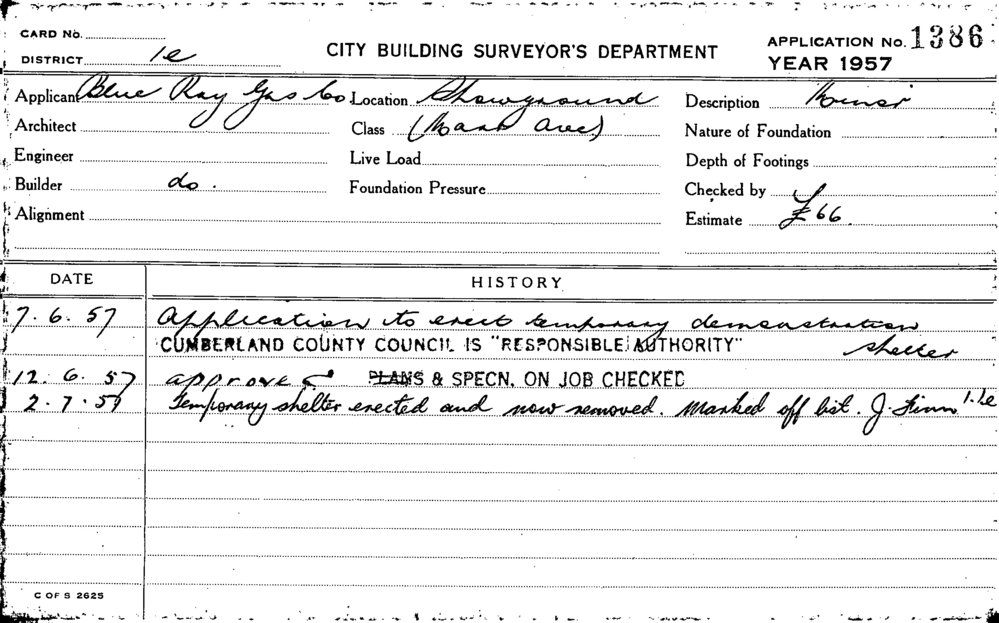 CARD No.
DISTRICT 1e
CITY BUILDING SURVEYOR'S DEPARTMENT
APPLICATION No. 1386
YEAR 1957
Applicant Blue Ray Gas Co Location Showground Description Minor
Architect Class (Park Ave) Nature of Foundation
Engineer Live Load Depth of Footings
Builder do. Foundation Pressure Checked by
Alignment Estimate £66
DATE HISTORY
7.6.57 Application to erect temporary demonstration
shelter
CUMBERLAND COUNTY COUNCIL IS "RESPONSIBLE AUTHORITY"
12.6.57 approved PLANS & SPECN. ON JOB CHECKED
2.7.57 Temporary shelter erected and now removed. Marked off list. J. Finn 1.1e
C OF S 2625